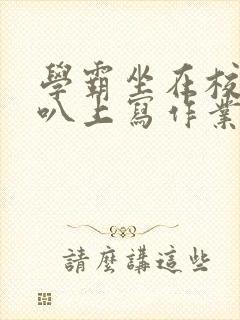 學霸坐在校
叭上寫作業
請麼講這些